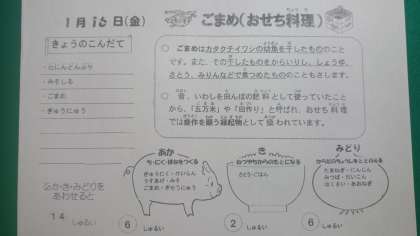 1月15日(金)
ごまめ(おせち料理)
きょうのこんだて
・たにんどんぶり
・みそしる
・ごまめ
・ぎゅうにゅう
○ ごまめはカタクチイワシの幼魚を干したもののこと
です。また、その干したものをからいりし、しょうゆ、
さとう、みりんなどで煮つめたもののこともさします。
○ 昔、いわしを田んぼの肥料として使っていたこと
から、「五万米」や「田作り」と呼ばれ、おせち料理
では豊作を願う縁起物として扱われています。
あか・き・みどりを
あわせると
14
しゅるい
あか
ち・にく・ほねをつくる
ぎゅうにく・けいらん
うすあげ・みそ
ごまめ・ぎゅうにゅう
6
しゅるい
き
ねつやちからのもとになる
さとう・ごはん
2
しゅるい
みどり
からだのちょうしをととのえる
たまねぎ・にんじん
みつば・だいこん
はくさい・あおねぎ
6
しゅるい